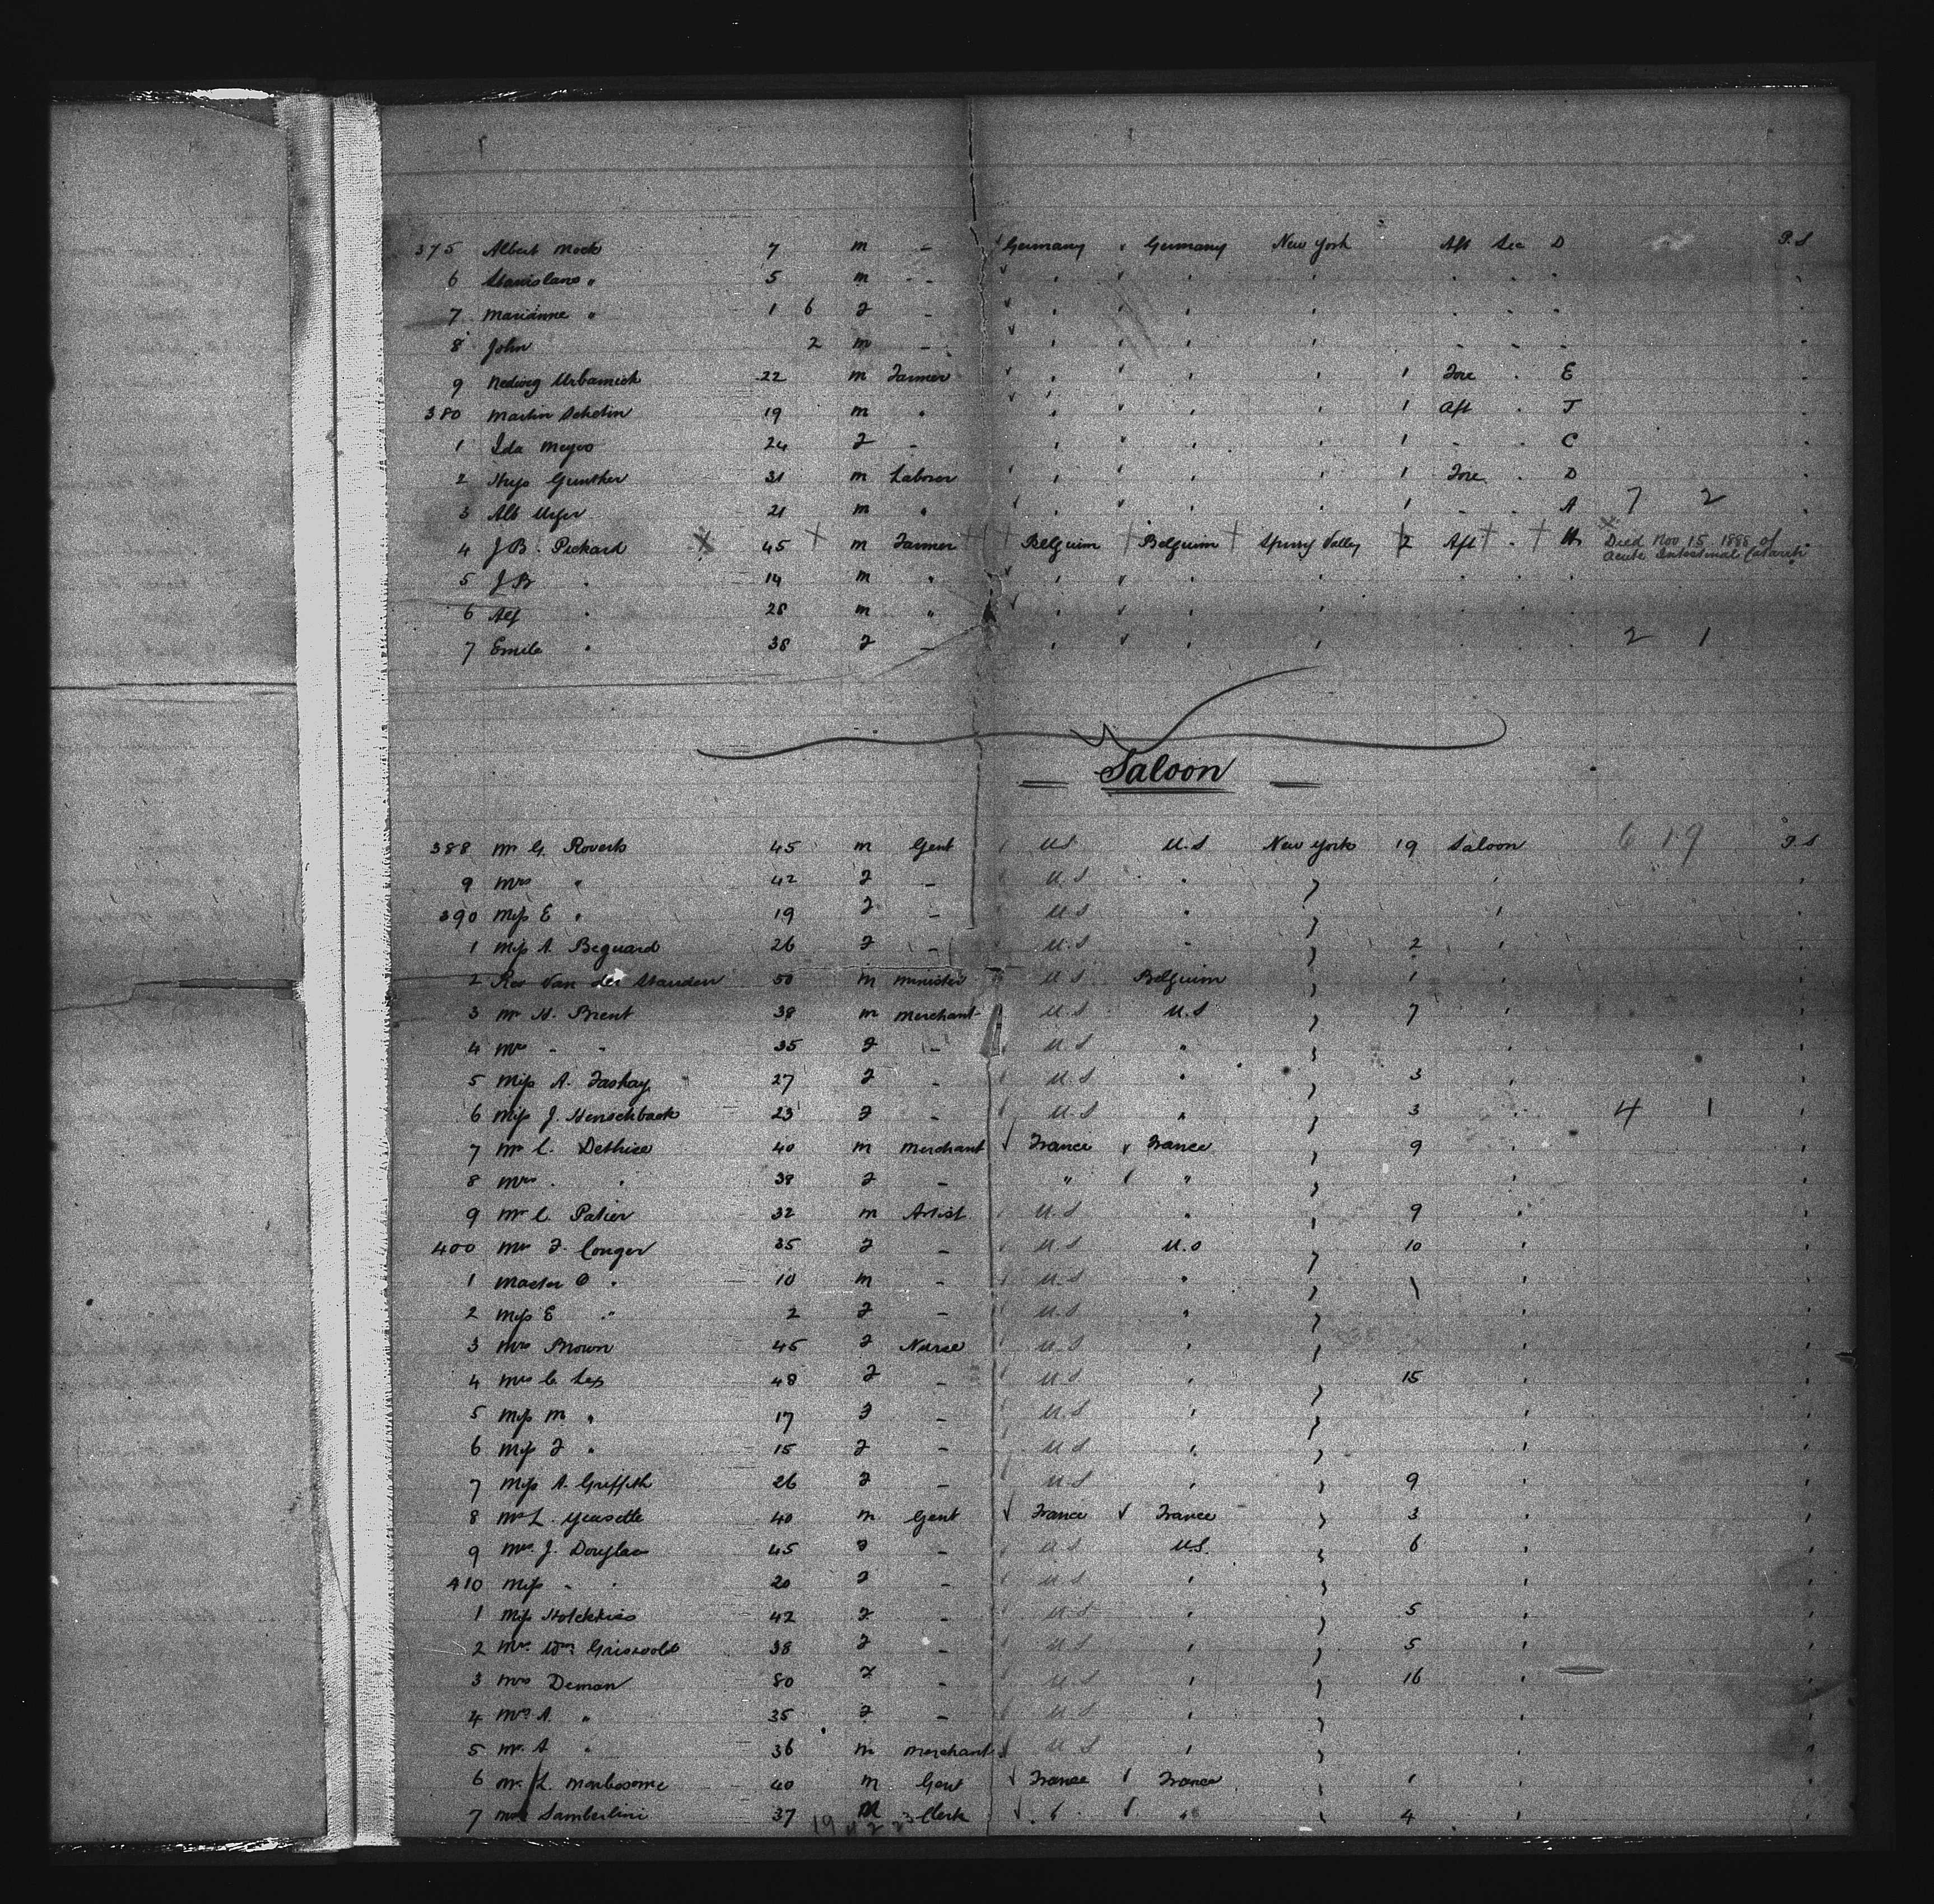 375 Albert Mock 7 m - Germany Germany New York Aft Sec D P.S
6 Stanislaus " 5 m - -
7 Marianne " 1 6 F -
8 John 2 m -
9 Urbanick 22 m Farmer 1 Fore E
380 Martin Schelin 19 m " 1 Aft J
1 Ida Meyer 24 F - 1 - C
2 Gunther 31 m Laborer 1 Fore D
3 Alb 21 m " 1 - A 7 2
4 J B. Pickard 45 m Farmer Belguim Belguim Spring Valley 2 Aft H Died Nov 15. 1888 of
Acute Intestinal Catarrh
5 J B " 14 m "
6 Alf " 28 m "
7 Emile " 38 F - 2 1
Saloon
388 Mr G. Roverts 45 m Gent U S U.S New York 19 Saloon 6 19 P.S
9 Mrs " 42 F - U.S "
390 Miss E " 19 F - U S "
1 Miss A. Beguard 26 F - U.S " 2
2 Rev Van der Standen 50 m Minister U S Belguim 1
3 Mr H. Brent 38 m Merchant U.S U.S 7
4 Mrs - - 35 F - U.S "
5 Miss A. Fashay 27 F - U.S " 3
6 Miss J. Henschback 23 F - U.S " 3 4 1
7 Mr C. Dethise 40 m Merchant France France 9
8 Mrs - " 38 F - " "
9 Mr C. Patier 32 m Artist U.S " 9
400 Mrs F. Conger 35 F - U S U.S 10
1 Master O " 10 m - U.S "
2 Miss E " 2 F - U.S "
3 Mrs Brown 45 F Nurse U.S "
4 Mrs C. Lex 48 F - U.S " 15
5 Miss M " 17 F - U.S "
6 Miss F " 15 F - U S "
7 Miss A. Griffith 26 F - U.S " 9
8 Mr L. 40 m Gent France France 3
9 Mrs. J. Douglas 45 F - U S U.S. 6
410 Miss - " 20 F - U S "
1 Miss Hotchkiss 42 F - U.S " 5
2 Mrs. Wm Griswold 38 F - U S " 5
3 Mrs Deman 80 F - U S " 16
4 Mrs A. " 35 F - U.S "
5 Mr. A " 36 m Merchant U S "
6 Mr. L. 40 m Gent France France 1
7 Samberlini 37 M Clerk " " 4